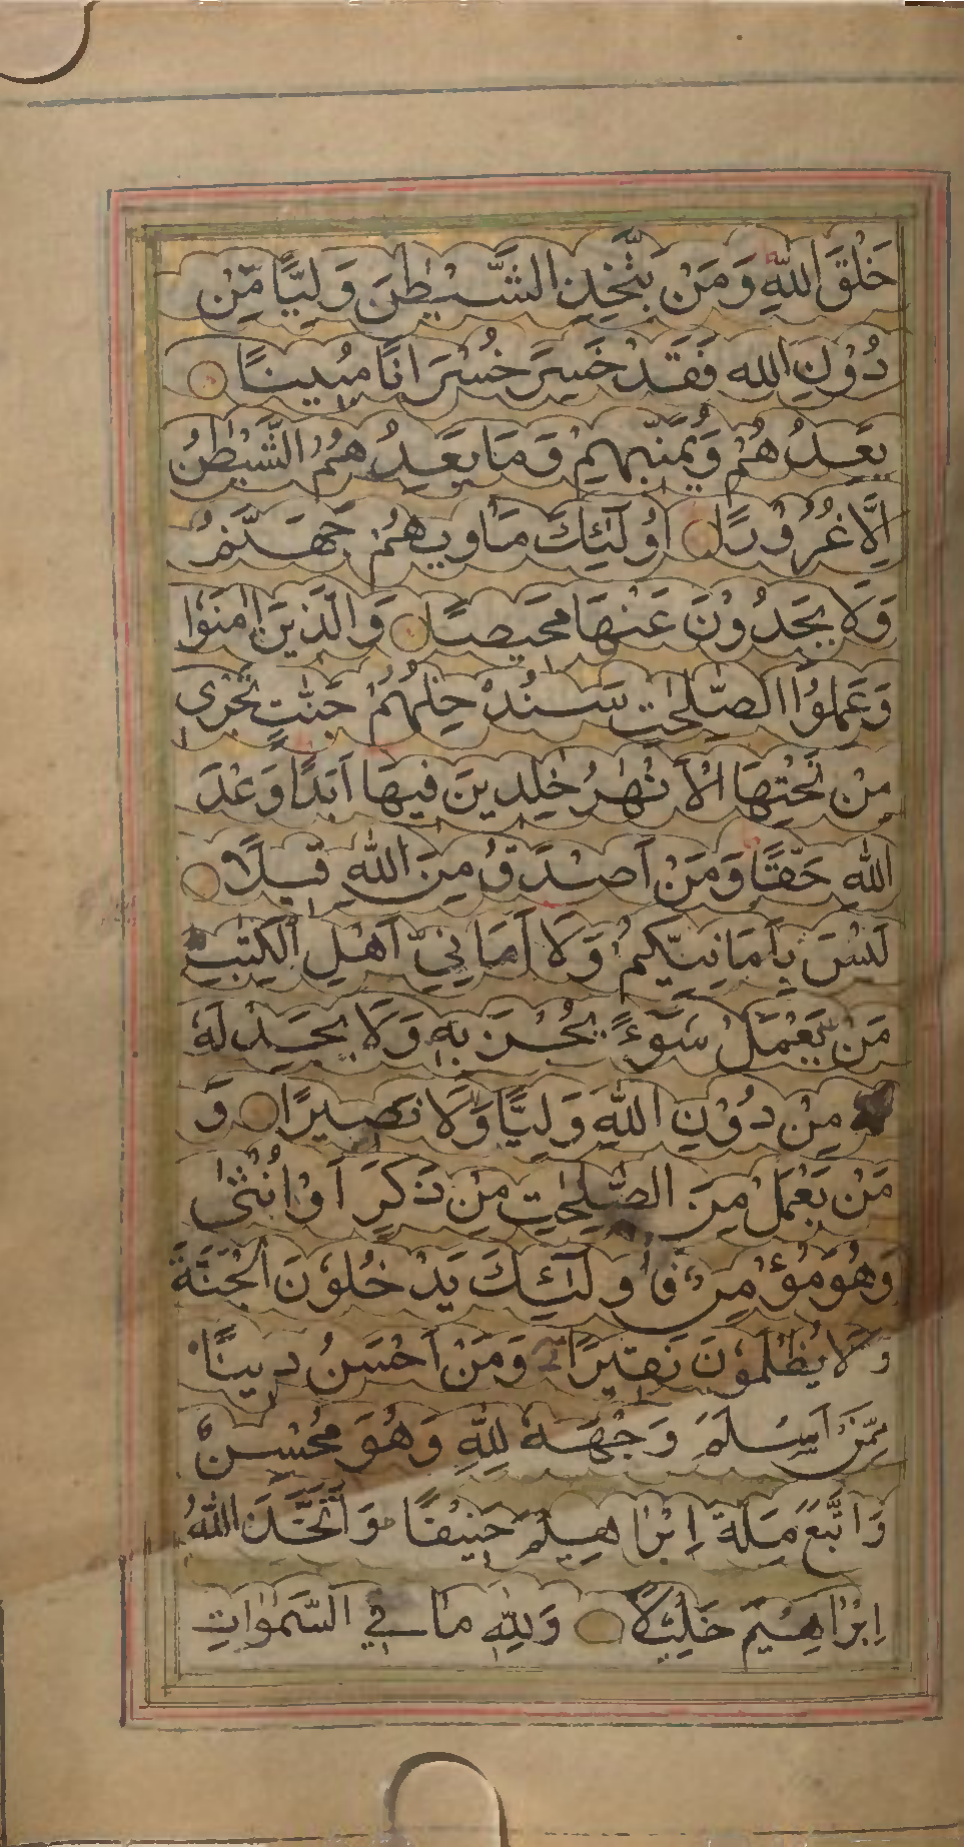 خَلْقَ اللّٰهِ وَمَنْ يَتَّخِذِ الشَّيْطٰنَ وَلِيًّا مِّنْ
دُوْنِ الله فَقَدْ خَسِرَ خُسْرَانًا مُبِينًا
يَعِدُهُمْ وَيُمَنِّيهِمْ وَمَا يَعِدُهُمُ الشَّيْطٰنُ
اِلَّا غُرُوْرًا اُولٰٓئِكَ مَاْويهُمْ جَهَنَّمُ
وَلَا يَجِدُوْنَ عَنْهَا مَحِيصًا وَالَّذِينَ اٰمَنُوْا
وَعَمِلُوْا الصّٰلِحٰتِ سَنُدْخِلُهُمْ جَنّٰتٍ تَجْرِى
مِنْ تَحْتِهَا الْاَنْهٰرُ خٰلِدِينَ فِيهَا اَبَدًا وَعْدَ
اللّٰهِ حَقًّا وَمَنْ اَصْدَقُ مِنَ اللّٰهِ قِيلًا
لَيْسَ بِاَمَانِيِّكُمْ وَلَا اَمَانِيِّ اَهْلِ الْكِتٰبِ
مَنْ يَّعْمَلْ سُوْٓءً يُّجْزَ بِهٖ وَلَا يَجِدْ لَهٗ
مِنْ دُوْنِ اللّٰهِ وَلِيًّا وَّلَا نَصِيرًا وَ
مَنْ يَعْمَلْ مِنَ الصّٰلِحٰتِ مِنْ ذَكَرٍ اَوْ اُنْثٰى
وَهُوَ مُؤْمِنٌ فَاُولٰٓئِكَ يَدْخُلُوْنَ الْجَنَّةَ
وَلَا يُظْلَمُوْنَ نَقِيرًا وَمَنْ اَحْسَنُ دِينًا
مِّمَّنْ اَسْلَمَ وَجْهَهٗ لِلّٰهِ وَهُوَ مُحْسِنٌ
وَاتَّبَعَ مِلَّةَ اِبْرٰاهِيمَ حَنِيْفًا وَاتَّخَذَ اللّٰهُ
اِبْرٰاهِيْمَ خَلِيْلًا وَلِلّٰهِ مَا فِي السَّمٰوٰاتِ